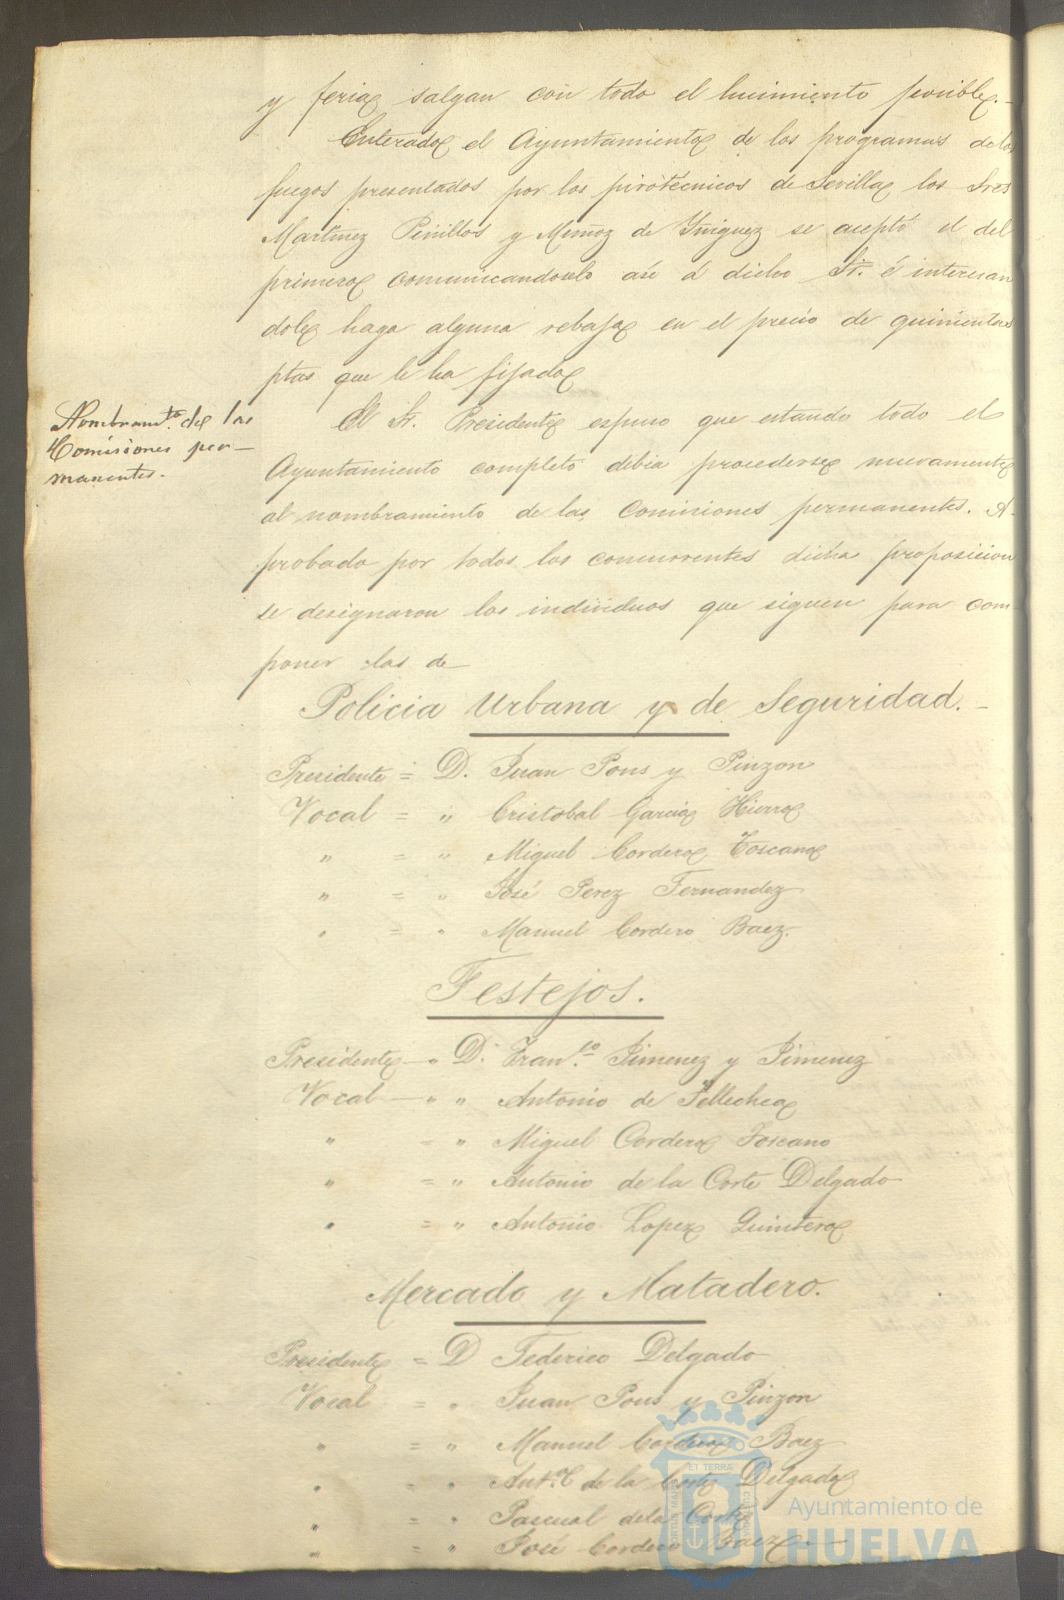 y feria salgan con todo el lucimiento posible.
Enterado el Ayuntamiento de los programas de los
fuegos presentados por los pirotécnicos de Sevilla los Sres
Martinez Pinillos y Muñoz de Yñiguez se aceptó el del
primero comunicandoselo asi á dicho Sr. é interesan
dole haga alguna rebaja en el precio de quinientas
ptas que le ha fijado
Nombramto. de las
Comisiones per-
manentes.
El Sr. Presidente espuso que estando todo el
Ayuntamiento completo debia procederse nuevamente
al nombramiento de las Comisiones permanentes. A-
probado por todos los concurrentes dicha proposicion
se designaron los individuos que siguen para com-
poner las de
Policia Urbana y de Seguridad.
Presidente = D. Juan Pons y Pinzon
Vocal = " Cristobal Garcia Hierro
" = " Miguel Cordero Toscano
" = " José Perez Fernandez
" = " Manuel Cordero Baez.
Festejos.
Presidente - " D. Franco. Jimenez y Jimenez
Vocal - " " Antonio de Tellechea
" = " Miguel Cordero Toscano
" = " Antonio de la Corte Delgado
" = " Antonio Lopez Quintero
Mercado y Matadero.
Presidente = D Federico Delgado
Vocal = " Juan Pons y Pinzon
" = " Manuel Cordero Baez
" = " Anto. de la Corte Delgado
" = " Pascual de la Corte
" = " José Cordero Baez
PORTUS MARIS ET TERRAE CUSTODIA
Ayuntamiento de
HUELVA